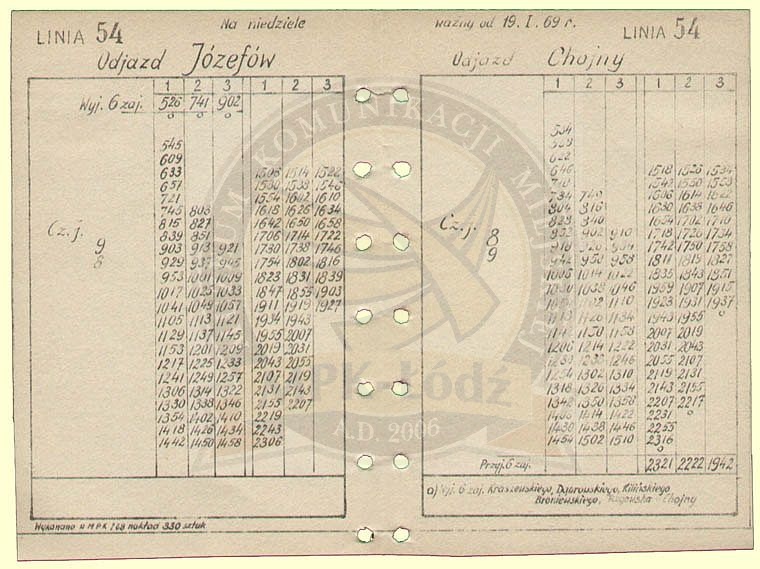 LINIA 54
Na niedziele
Odjazd Józefów
1 2 3 1 2 3
Wyj. 6 zaj. 526 741 902
545
609
633 1506 1514 1522
657 1530 1538 1546
721 1554 1602 1610
745 803 1618 1626 1634
815 827 1642 1650 1658
839 851 1706 1714 1722
903 913 921 1730 1738 1746
929 937 945 1754 1802 1816
953 1001 1009 1823 1831 1839
1017 1025 1033 1847 1855 1903
1041 1049 1057 1911 1919 1927
1105 1113 1121 1934 1943
1129 1137 1145 1955 2007
1153 1201 1209 2019 2031
1217 1225 1233 2043 2055
1241 1249 1257 2107 2119
1306 1314 1322 2131 2143
1330 1338 1346 2155 2207
1354 1402 1410 2219
1418 1426 1434 2243
1442 1450 1458 2306
Cz. j. 9
8
Wykonano w MPK /68 nakład 330 sztuk
ważny od 19. I. 69 r.
LINIA 54
Odjazd Chojny
1 2 3 1 2 3
622
646 1518 1526 1534
1542 1550 1558
734 1606 1614 1622
804 816 1630 1638 1646
828 840 1654 1702 1710
902 910 1718 1726 1734
918 926 934 1742 1750 1758
942 950 958 1811 1819 1827
1006 1014 1022 1835 1843 1851
1030 1038 1046 1859 1907 1915
1102 1110 1923 1931 1937
1118 1126 1134 1943 1955
1142 1150 1158 2007 2019
1206 1214 1222 2031 2043
1230 1238 1246 2055 2107
1254 1302 1310 2119 2131
1318 1326 1334 2143 2155
1342 1350 1358 2207 2217
1406 1414 1422 2231
1430 1438 1446 2255
1454 1502 1510 2316
Cz. j. 8
9
Przyj. 6 zaj. 2321 2222 1942
o/ wyj. 6 zaj. Kraszewskiego, Dąbrowskiego, Kilińskiego
Broniewskiego, Rzgowska Chojny
MUZEUM KOMUNIKACJI MIEJSKIEJ
MPK-Łódź
A.D. 2006